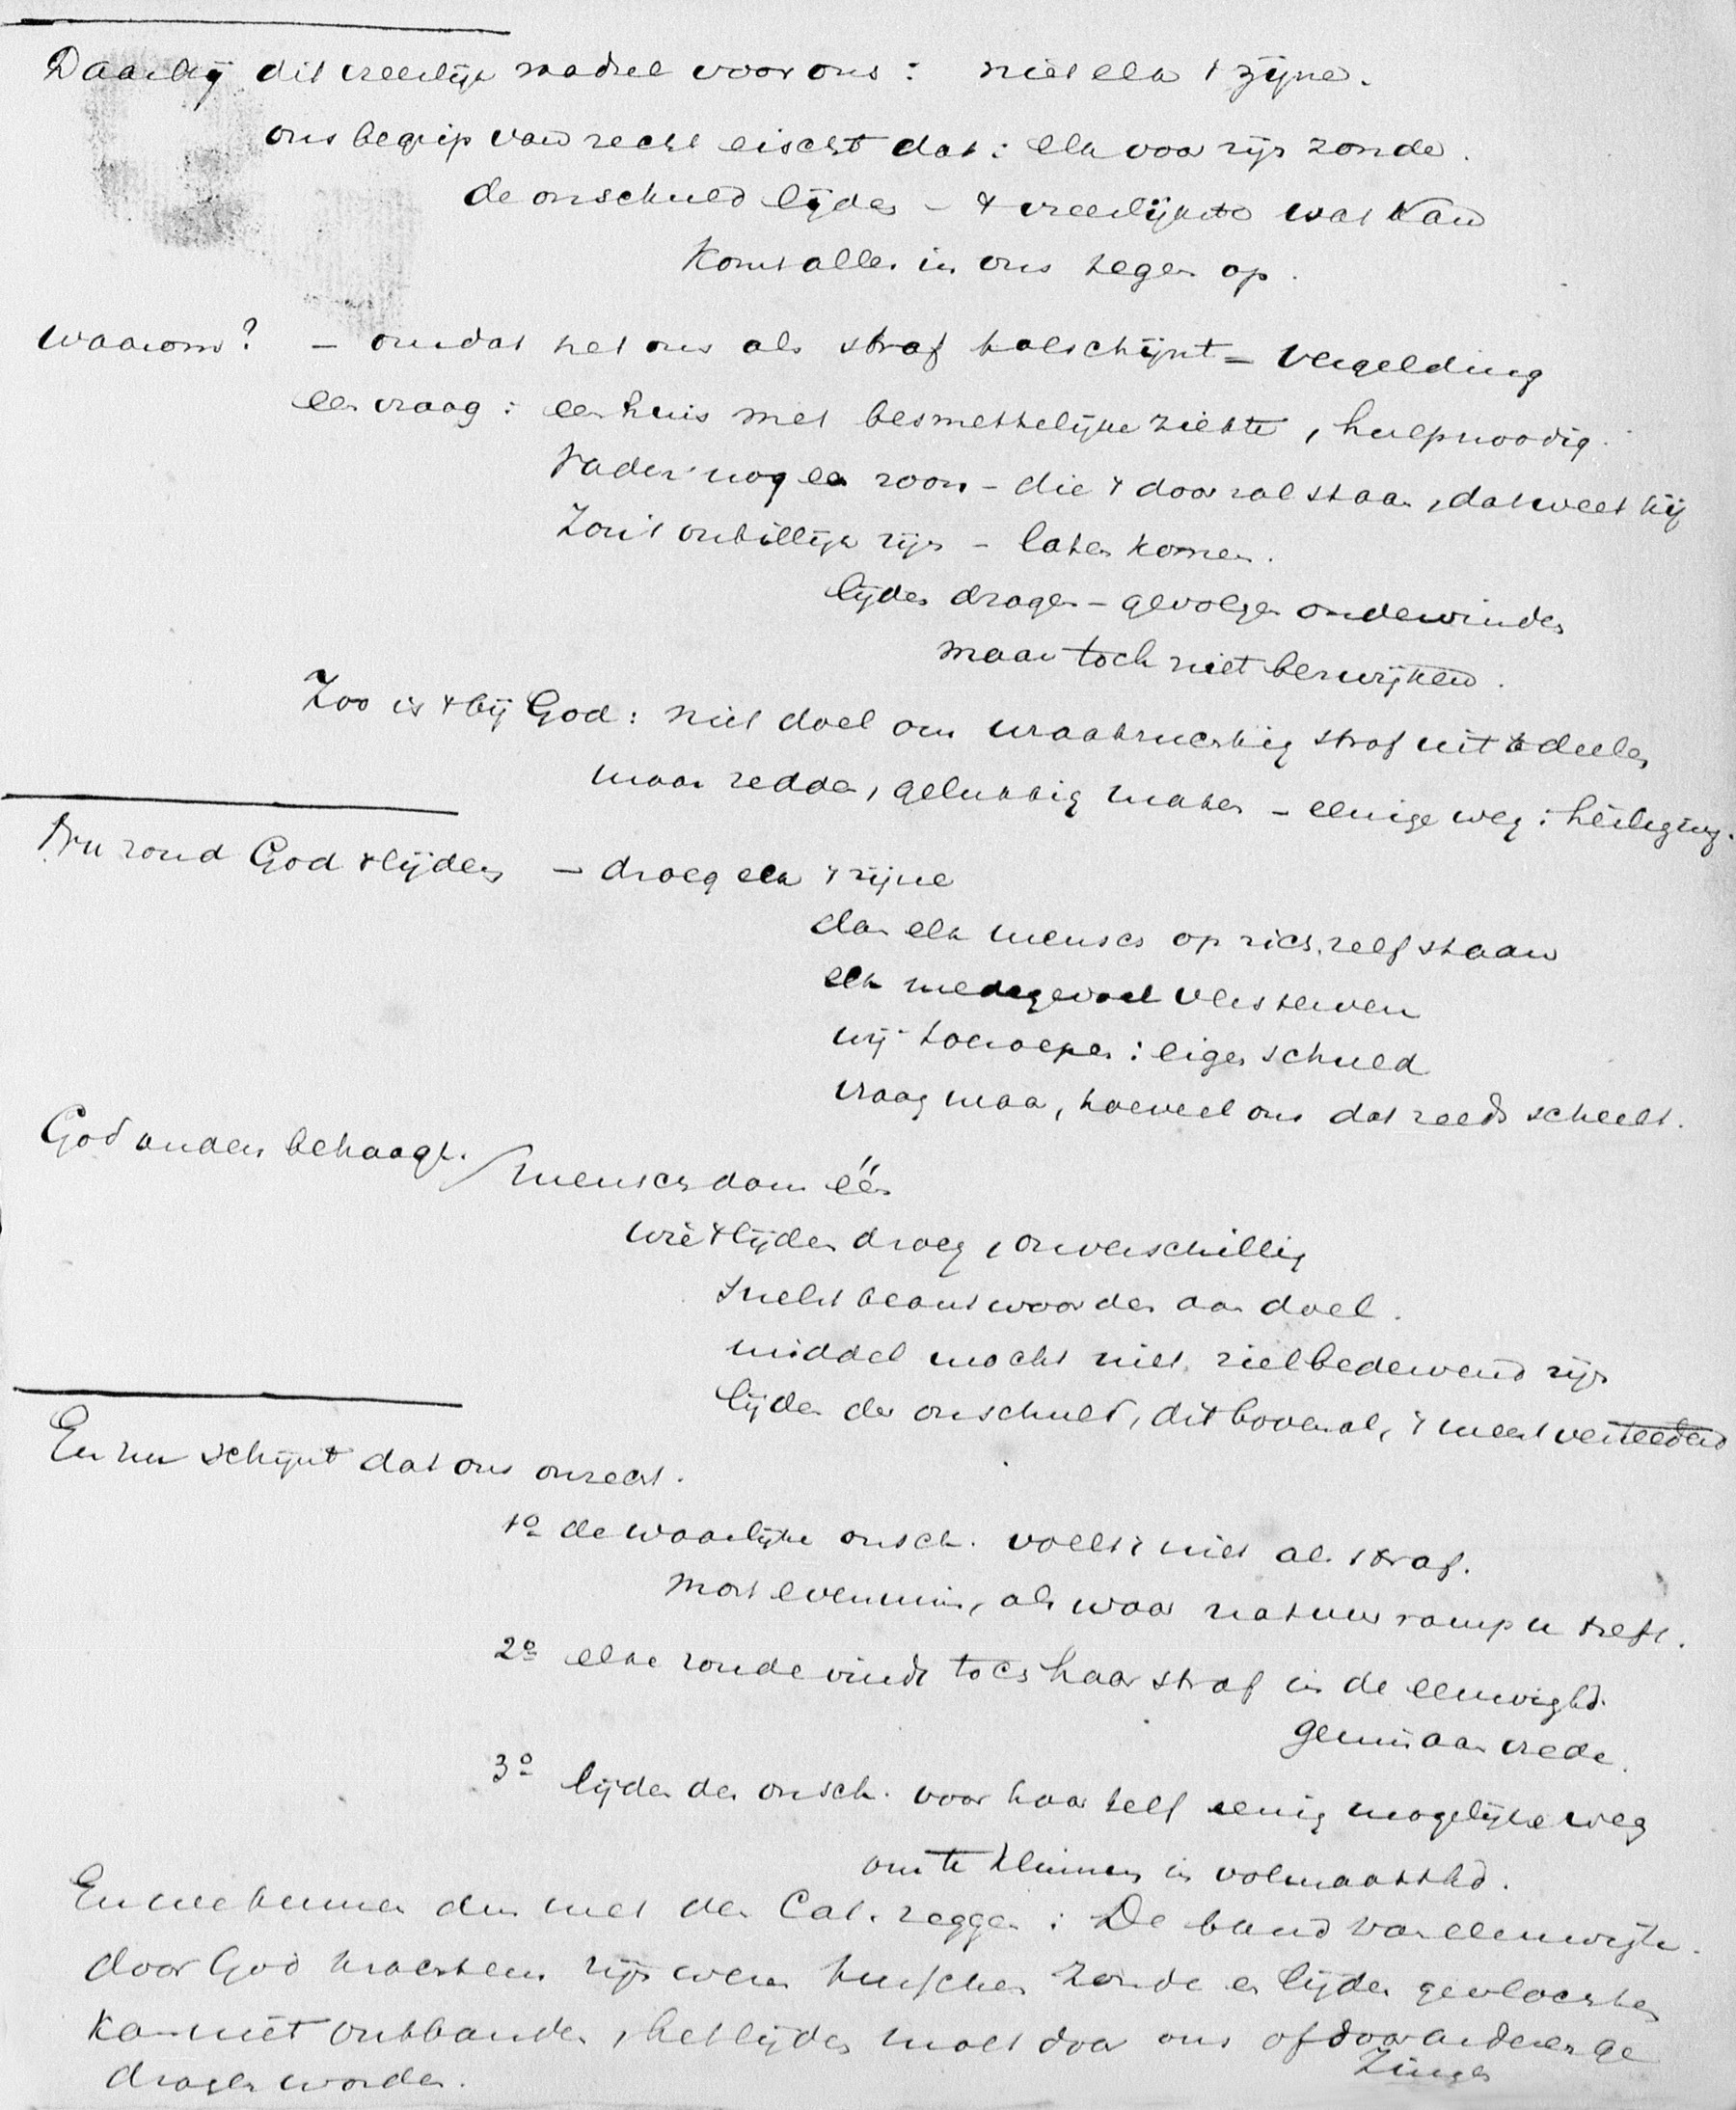 Daarbij dit vreeslijk raadsel voor ons: niet elk 't zijne.
ons begrip van recht eischt dat: elk voor zijn zonde.
de onschuld lijden - 't vreeslijkste wat kan
komt alles in ons tegen op.
waarom? - omdat het ons als straf toeschijnt = vergelding
een vraag: een huis met besmettelijke ziekte, hulp noodig.
Vader nog een zoon - die 't doorzal staan, dat weet hij
Zou 't onbillijk zijn - laten komen.
lijden dragen - gevolgen ondervinden
maar toch niet bezwijken.
Zoo is 't bij God: niet doel om wraakzuchtig straf uit te deelen
maar redden, gelukkig maken - eenige weg: heiliging.
Nu zond God 't lijden - droeg elk 't zijne
dan elk mensch op zich zelf staan
elk medegevoel versterven
wij toeroepen: eigen schuld
vraag maar, hoeveel ons dat reeds scheelt.
God anders behaagt. / menschdom één
wie 't lijden droeg, onverschillig
't melst beantwoorden aan doel.
middel mocht niet zielbedervend zijn
lijden der onschuld, dit bovenal, 't meest verteederd
En nu schijnt dat ons onrecht.
1o de waarlijke onsch. voelt 't niet als straf.
mort evenmin, als waar natuurramp u treft.
2o elke zonde vindt toch haar straf in de eeuwighd.
gemis aan vrede.
3o lijden der onsch. voor haar zelf eenig mogelijke weg
om te klimmen in volmaakthd.
En we kunnen dus met den Cat. zeggen: De band van eeuwigh.
door God krachtens zijn wezen tusschen zonde en lijden gevlochten
kan niet ontbonden, het lijden moet door ons of door anderen ge
dragen worden. Zingen